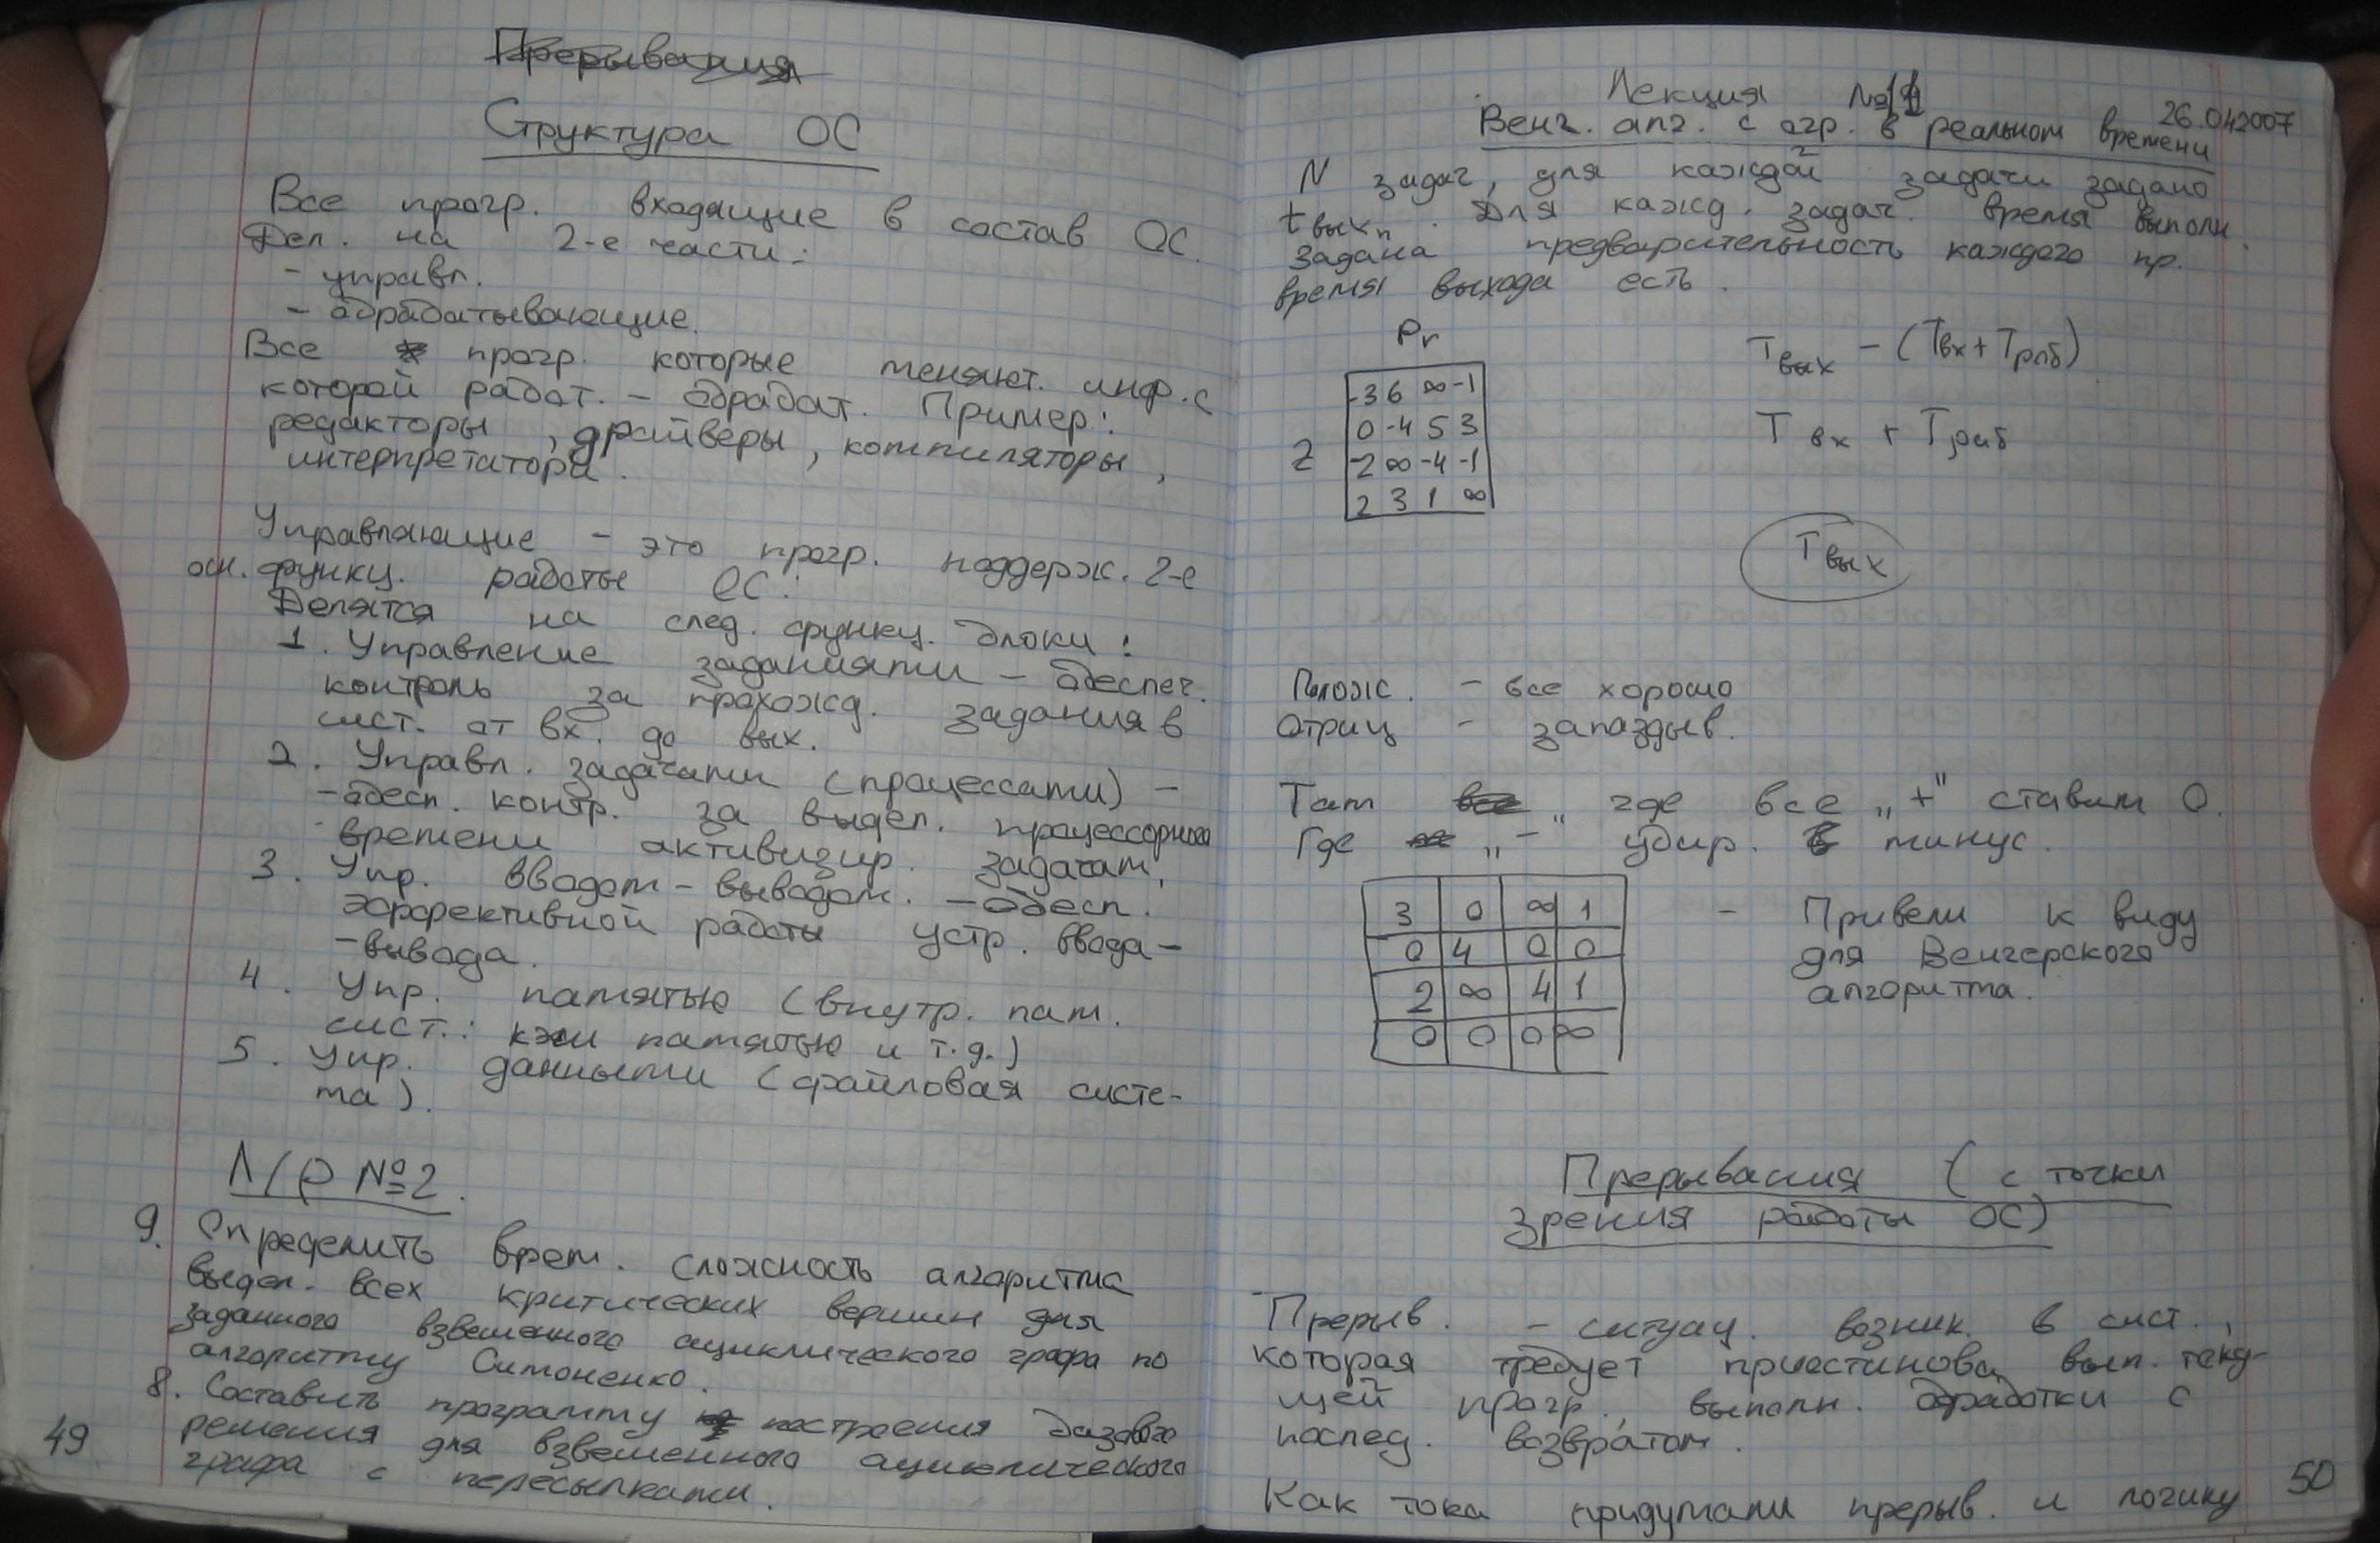 Прерывания
Структура ОС
Все прогр. входящие в состав ОС.
Дел. на 2-е части:
- управл.
- обрабатывающие.
Все прогр. которые меняют. инф. с
которой работ. - обработ. Пример:
редакторы, драйверы, компиляторы,
интерпретатора.
Управляющие - это прогр. поддерж. 2-е
осн. функц. работы ОС:
Делятся на след. функц. блоки:
1. Управление заданиями - обеспеч.
контроль за прохожд. задания в
сист. от вх. до вых.
2. Управл. задачами (процессами) -
- обесп. контр. за выдел. процессорного
времени активизир. задачам.
3. Упр. вводом - выводом. - обесп.
эффективной работы устр. ввода -
- вывода.
4. Упр. памятью (внутр. пам.
сист.: кэш памятью и т.д.)
5. Упр. данными (файловая систе-
ма).
Л/р №2.
9. Определить врем. сложность алгоритма
выдел. всех критических вершин для
заданного взвешенного ациклического графа по
алгоритму Симоненко.
8. Составить программу построения базового
решения для взвешенного ациклического
графа с пересылками.
49
Лекция №
26.042007
Венг. алг. с огр. в реальном времени
N задач, для каждой задачи задано
tвыхn. Для кажд. задач. время выполн.
Задана предварительность каждого пр.
время выхода есть.
Pr
-3 6 ∞ -1
0 -4 5 3
-2 ∞ -4 -1
2 3 1 ∞
Z
Tвых - (Tвх + Tраб)
Tвх + Tраб
Tвых
Полож. - все хорошо
Отриц - запаздыв.
Там где все „+" ставим 0.
Где „-" убир. минус.
3 0 ∞ 1
0 4 0 0
2 ∞ 4 1
0 0 0 ∞
- Привели к виду
для Венгерского
алгоритма.
Прерывания (с точки
зрения работы ОС)
Прерыв. - ситуац. возник. в сист.,
которая требует приостановки вып. теку-
щей прогр., выполн. обработки с
послед. возвратом.
Как тока придумали прерыв. и логику
50